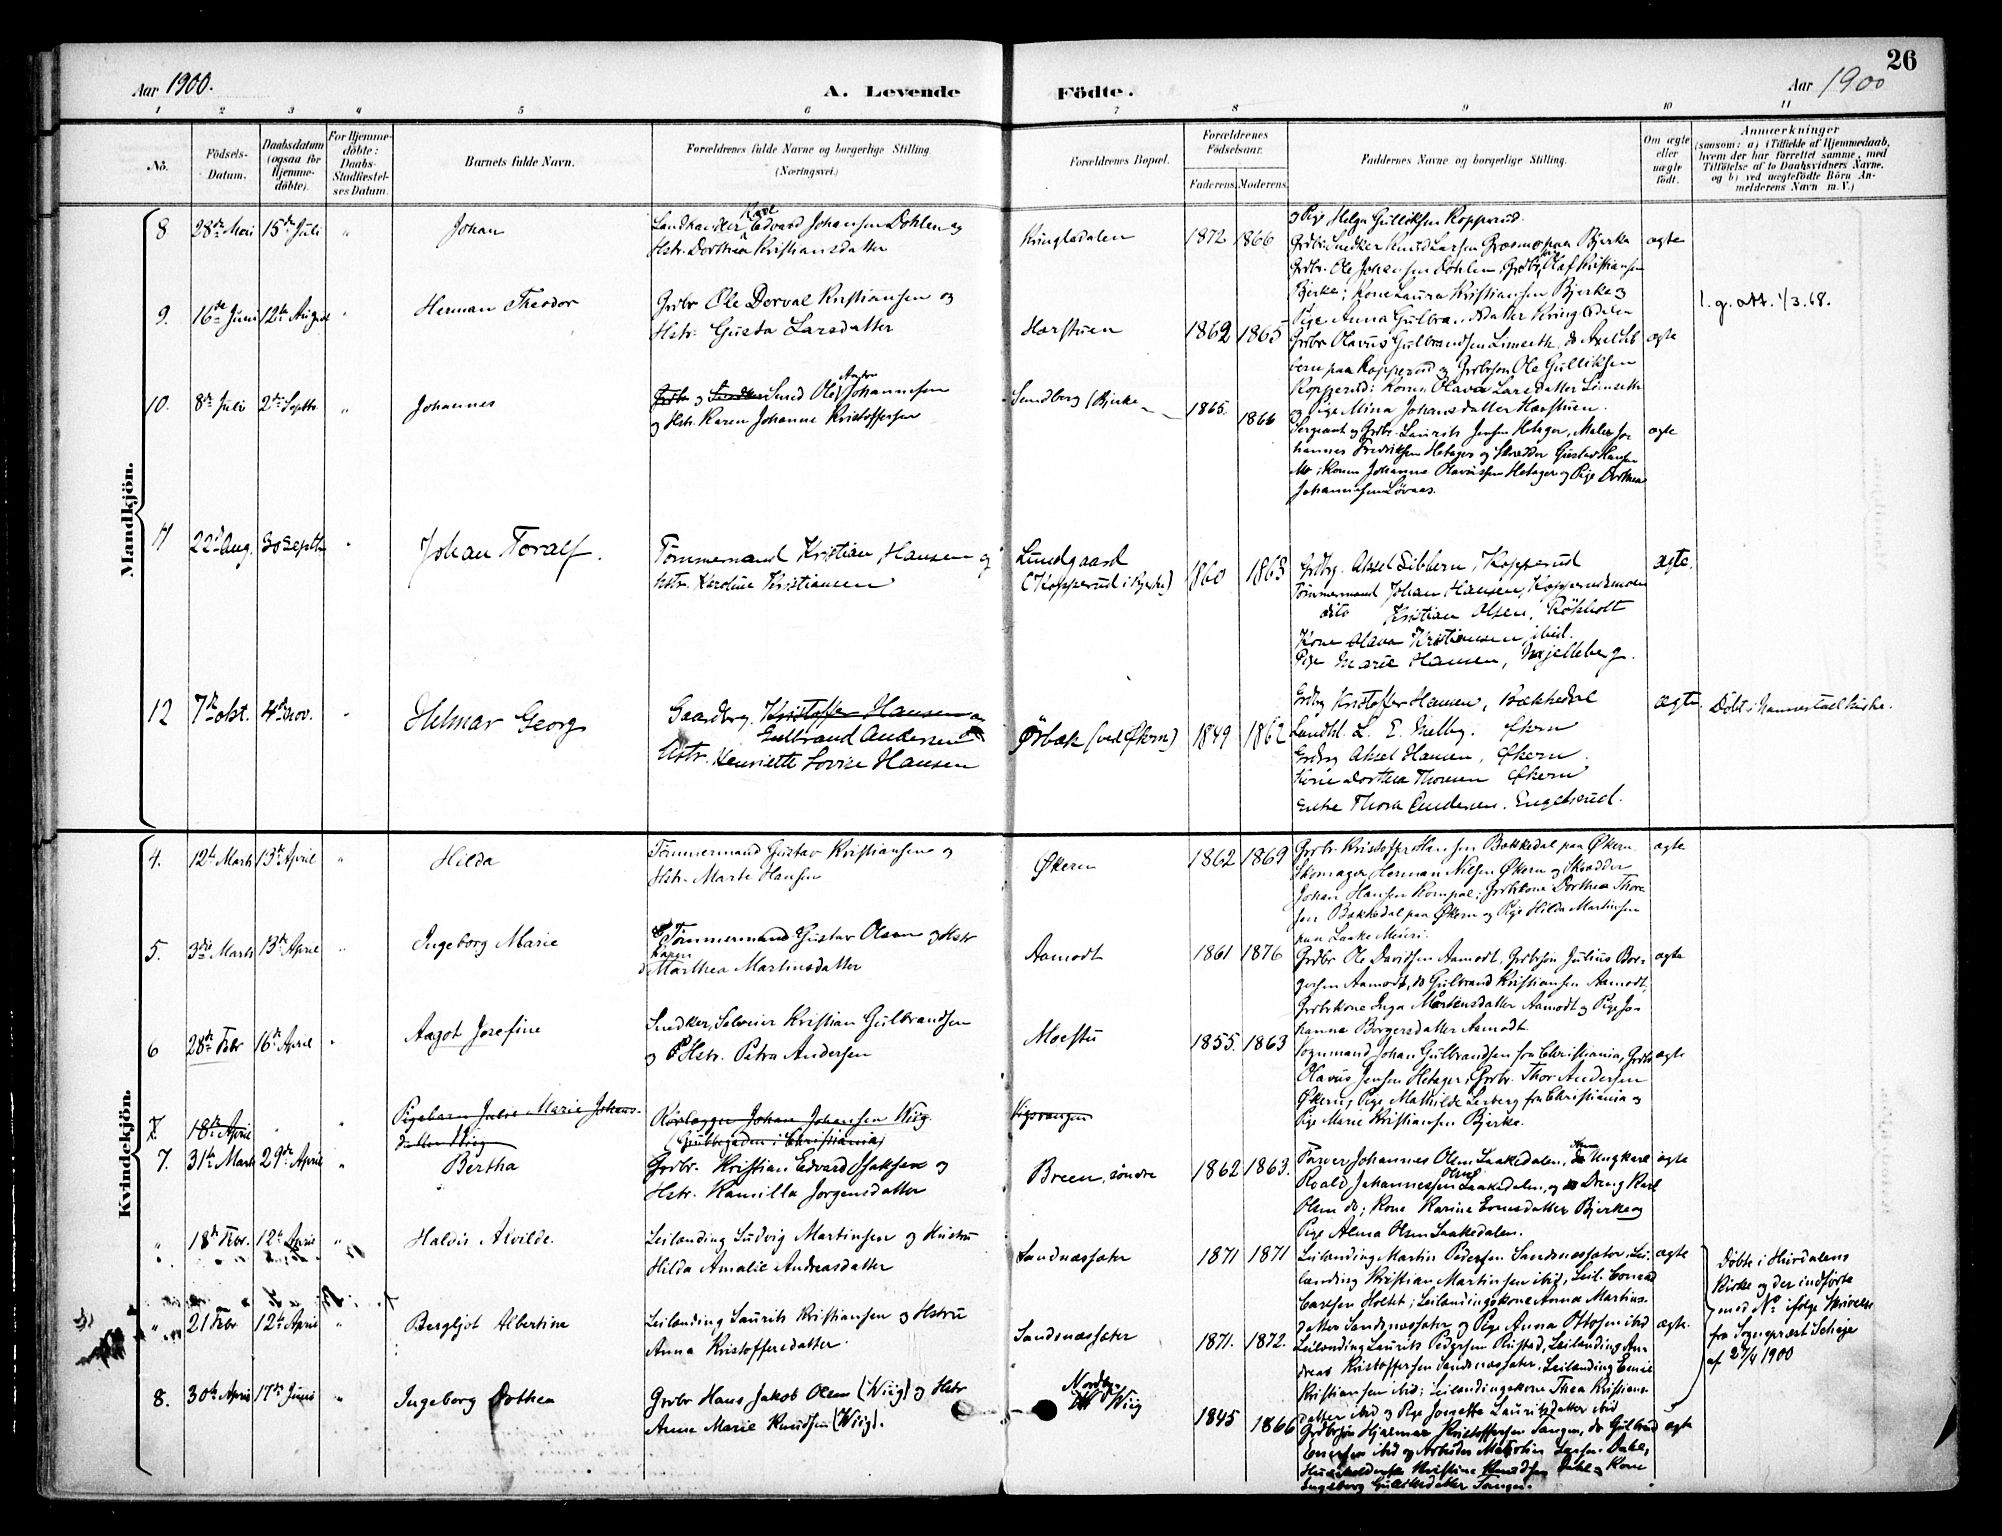 26
Aar 1900.
A. Levende
Födte.
Aar 1900
1 2 3 4 5 6 7 8 9 10 11
No.
Födsels-
Datum.
Daabsdatum
(ogsaa for
Hjemme-
döbte).
For Hjemme-
döbte:
Daabs-
Stadfæstel-
ses Datum.
Barnets fulde Navn.
Forældrenes fulde Navne og borgerlige Stilling.
(Næringsvei.)
Forældrenes Bopæl.
Forældrenes
Födselsaar.
Faderens.
Moderens.
Faddernes Navne og borgerlige Stilling.
Om ægte
eller
uægte
födt.
Anmærkninger
(saasom: a) i Tilfælde af Hjemmedaab,
hvem der har forrettet samme, med
Tilföielse af to Daabsvidners Navne,
og b) ved uægtefödte Börn An-
melderens Navn m. V.)
Mandkjön.
8. 28de Mai 15de Juli " Johan
Landhandler Karl Edvard Johansen Dohlen og
Hstr. Dorthea Kristiansdatter
Kringledalen 1872 1866
og Pige Helga Gulliksen Kopperud.
Grdbr. Snedker Knud Larsen Græsmo paa Bjerke ægte
Grdbr. Ole Johansen Dohlen, Grdbr. Olaf Kristiansen
Bjerke; Kone Laura Kristiansen Bjerke og
Pige Anna Gulbrandsdatter Kringledalen
9. 16de Juni 12te August " Herman Theodor
Grdbr. Ole Dorval Kristiansen og
Hstr. Gusta Larsdatter
Harstuen 1862 1865
Grdbr. Olavus Gulbrandsen Limseth, do Axel Lib
bern paa Kopperud og Grdbrsøn Ole Gulliksen
Kopperud; Kone Olava Larsdatter Limseth
og Pige Mina Johansdatter Harstuen.
ægte
l. g. att. 1/3.68.
10. 8de Juli 2den Septbr. " Johannes
Grdbr. og Smed Ole Anton Johannesen
og Hstr. Karen Johanne Kristoffersen
Sundberg (Bjerke 1865. 1866
Sergeant og Grdbr. Laurits Jensen Hetager, Maler Jo
hannes Fredriksen Hetager og Skrædder Gustav Hansen
Mo; Konen Johanne Olavussen Hetager og Pige Dorthea
Johannesen Løvaas.
ægte
11 22d Aug. 30 Septbr " Johan Toralf.
Tömmermand Kristian Hansen og
Hstr. Karoline Kristiansen
Lundgaard
(Kopperud i Bjerke) 1860 1863
Grdbrg. Aksel Libbern, Kopperud
Tömmermand Johan Hansen, Kopperudsmoen
dito Kristian Olsen, Rökholt
Kone Olava Kristiansen, ibid.
Pige Marie Hansen, Mjelleberg.
ægte.
12 7de okt. 4de nov. " Hilmar Georg
Gaardbrg. Kristoffer Hansen og
Gulbrand Andersen
Hstr. Henriette Lovise Hansen
Örbæk (ved Økern) 1849 1862
Grdbrg Kristoffer Hansen, Bækkedal
Landhl. L. E. Melby. Økern
Grdbrg Aksel Hansen, Økern.
Kone Dorthea Thoresen Økern
Enke Thora Andersen. Engelsrud.
ægte. Döbt i Nannestad kirke.
Kvindekjön.
4. 12te Marts 13de April " Hilda
Tømmermand Gustav Kristiansen og
Hstr. Marte Hansen
Økern 1862 1869
Grdbr. Kristoffer Hansen Bækkedal paa Økern,
Skomager Herman Nilsen Økern og Skrædder
Johan Hansen Kompal; Grdbrkone Dorthea Thore
sen Bækkedal paa Økern og Pige Hilda Martinsen
paa Laake Meieri.
ægte
5. 3die Marts 13de April " Ingeborg Marie
Tømmermand Gustav Olsen og Hstr
Karen
Marthea Martinsdatter
Aamodt 1861 1876
Grdbr. Ole Davidsen Aamodt, Grdbrsøn Julius Bor-
gersen Aamodt, do Gulbrand Kristiansen Aamodt,
Grdbrkone Inga Mortensdatter Aamodt og Pige Jo-
hanna Borgersdatter Aamodt.
ægte
6 28de Febr 16de April " Aagot Josefine
Snedker, Selveier Kristian Gulbrandsen
og Hstr. Petra Andersen
Moestu 1855. 1863
Vognmand Johan Gulbrandsen fra Christiania, Grdbr.
Olavus Jensen Hetager; Grdbr. Thor Andersen
Økern; Pige Mathilde Lerberg fra Christiania og
Pige Marie Kristiansen Bjerke.
ægte
7. 18de April Pigebarn Julie Marie Johans-
datter Wiig
Rørlægger Johan Johansen Wiig
(Grubbegaden i Christiania)
Vigsvangen
7. 31te Marts 29de April " Bertha
Grdbr. Kristian Edvard Isaksen og
Hstr. Kamilla Jørgensdatter
Breen, søndre 1862 1863.
Farver Johannes Olsen Laakedalen, Ungkarl
Roald Johannessen Laakedalen, og Dreng Karl
Olsen do; Kone Karine Evensdatter Bjerke og
Pige Alma Olsen Laakedalen.
ægte
" 18de Febr. 12te April " Haldis Alvilde.
Leilænding Ludvig Martinsen og Hustru
Hilda Amalie Andreasdatter
Sandnæssæter 1871 1871
Leilænding Martin Pedersen Sandnæssæter, Lei-
lænding Kristian Martinsen ibid, Leil. Conrad
Carlsen Holtet; Leilændingskone Anna Martins-
datter Sandnæssæter og Pige Anna Ottosen ibid
ægte
Döbte i Hurdalens
Kirke og der indførte
med No ifølge Skrivelse
fra Sognepræst Scheje
af 27/4 1900
" 21 Febr 12te April " Bergljot Albertine
Leilænding Laurits Kristiansen og Hstru
Anna Kristoffersdatter.
Sandsnæssæter 1871. 1872.
Leilænding Laurits Pedersen Rustad, Leilænding An-
dreas Kristoffersen Sandsnæssæter, Leilænding Emil
Kristiansen ibid; Leilændingskone Thea Kristians-
datter ibid og Pige Josefte Lauritsdatter ibid
ægte.
8. 30te April 17de Juni " Ingeborg Dorthea
Grdbr Hans Jakob Olsen (Wiig) og Hstr
Anne Marie Knudsen (Wiig).
Nordby
Wiig
1845 1866
Grdbrsøn Hjalmar Kristoffersen Tangen, do Gulbrand
Enersen ibid og Arbeider Martin Larsen Dahl,
Husholderske Kristine Knudsen Dahl og Kone
Ingeborg Gulliksdatter Tangen.
ægte